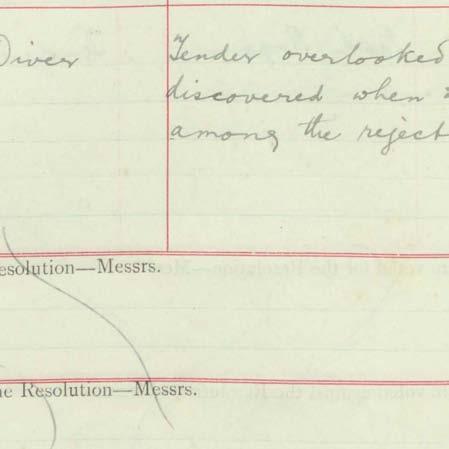 Diver
Tender overlooked
discovered when
among the reject
esolution—Messrs.
he Resolution—Messrs.